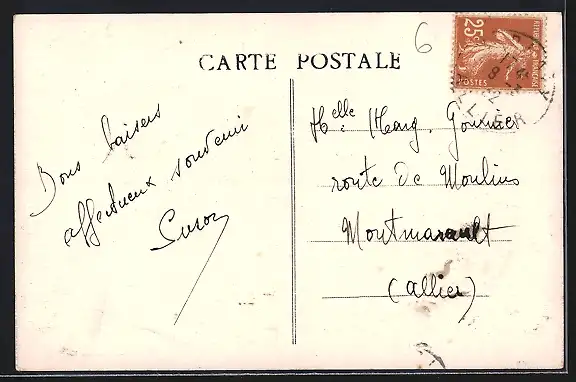 6
CARTE POSTALE
25c
POSTES
ALLIER
Bons baisers
affectueux souvenir
Suzon
Melle Marg.
route de Moulins
Montmarault
(Allier)